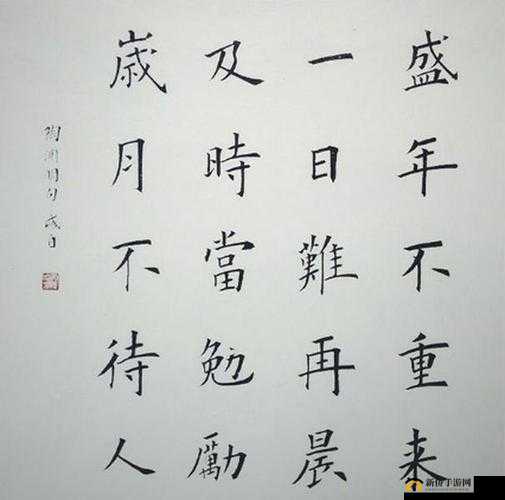 盛年不重来
一日難再晨
及時當勉勵
歲月不待人
陶渊明句
新仿手游网